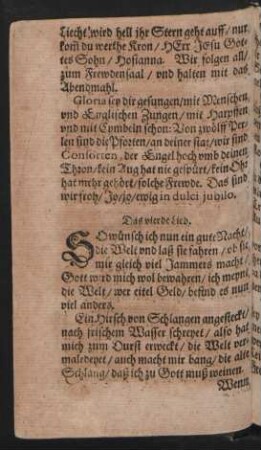 Liecht/ wird hell jhr Stern geht auff/ nur
kom̃ du werthe Kron/ HErr JEsu Got-
tes Sohn/ Hosianna. Wir folgen all/
zum Frewdensaal/ vnd halten mit das
Abendmahl.
Gloria sey dir gesungen/ mit Menschen
vnd Englischen Zungen/ mit Harpffen
vnd mit Cymbeln schon: Von zwölff Per-
len sind die Pforten/ an deiner stat/ wir sind
Consorten, der Engel hoch vmb deinen
Thron/ kein Aug hat nie gespürt/ kein Ohr
hat mehr gehört/ solche Frewde. Das sind
wir froh/ Jo/jo/ ewig in dulci jubilo.
Das vierde Lied.
SO wünsch ich nun ein gute Nacht/
die Welt vnd laß sie fahren/ ob sie
mir gleich viel Jammers macht/
Gott wird mich wol bewahren/ ich meynt
die Welt/ wer eitel Geld/ befind es nun
viel anders.
Ein Hirsch von Schlangen angesteckt/
nach frischem Wasser schreyet/ also hat
mich zum Durst erweckt/ die Welt ver-
maledeyet/ auch macht mir bang/ die alte
Schlang/ daß ich zu Gott muß weinen.
Wenn